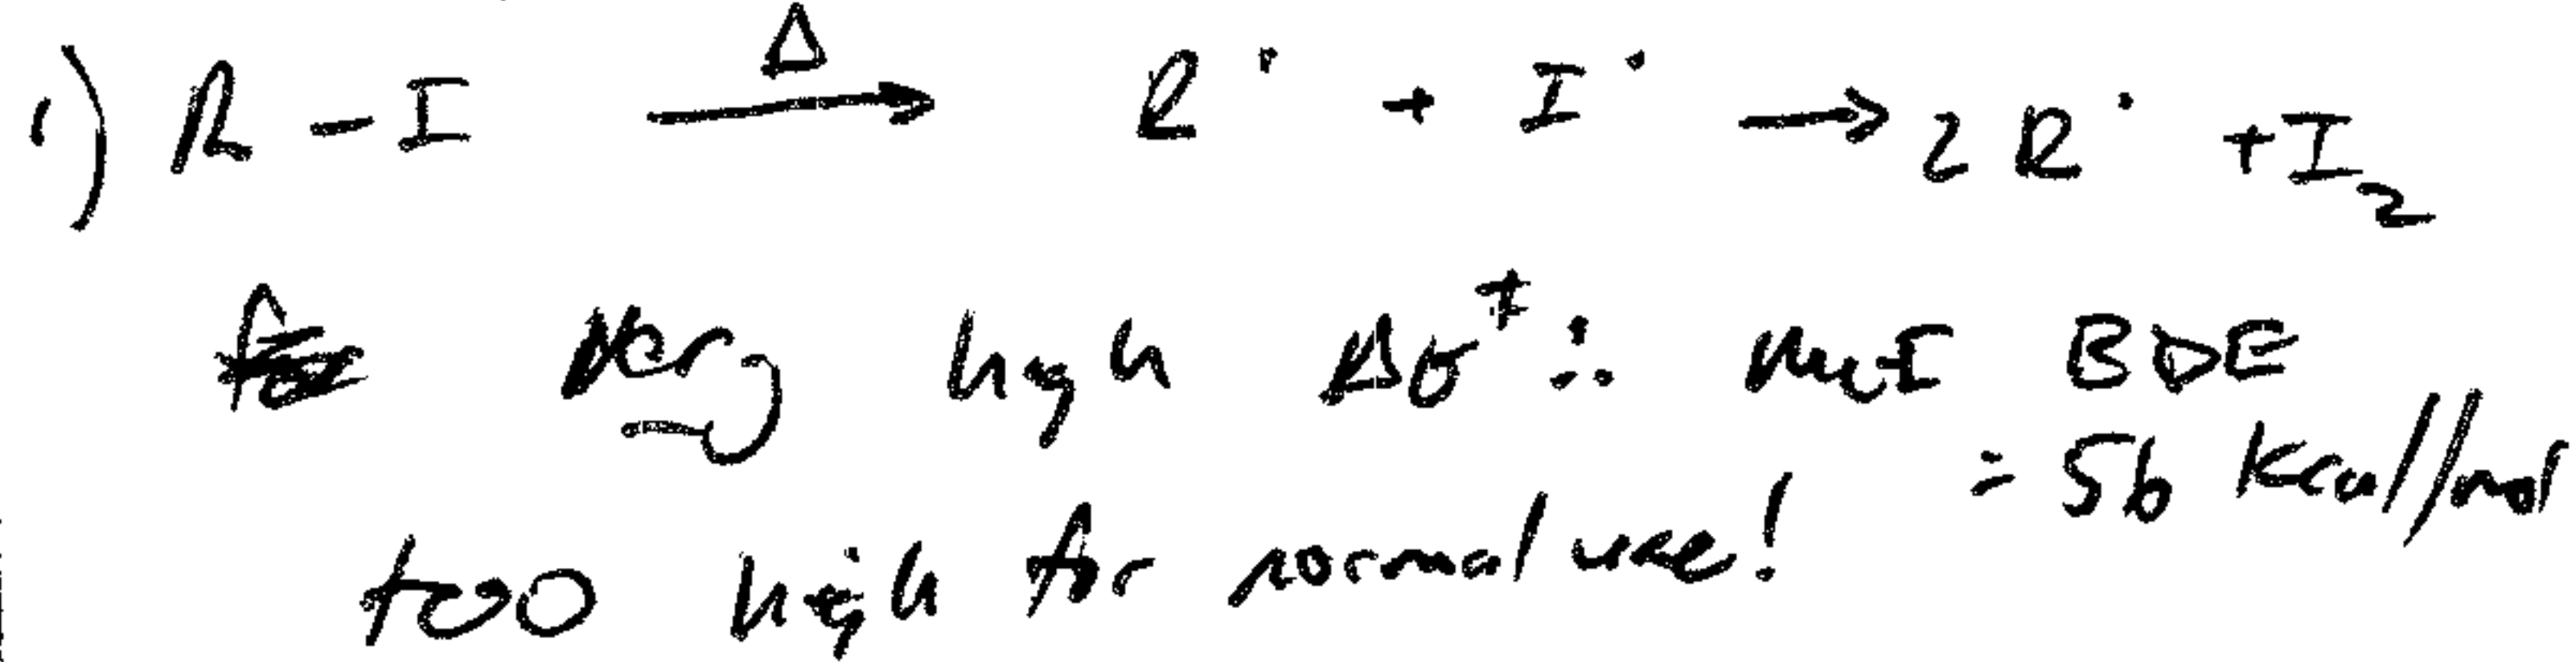 1) R - I Δ → R· + I· → 2 R· + I₂
Very high ΔG‡ ∴ Me-I BDE
= 56 kcal/mol
too high for normal use!